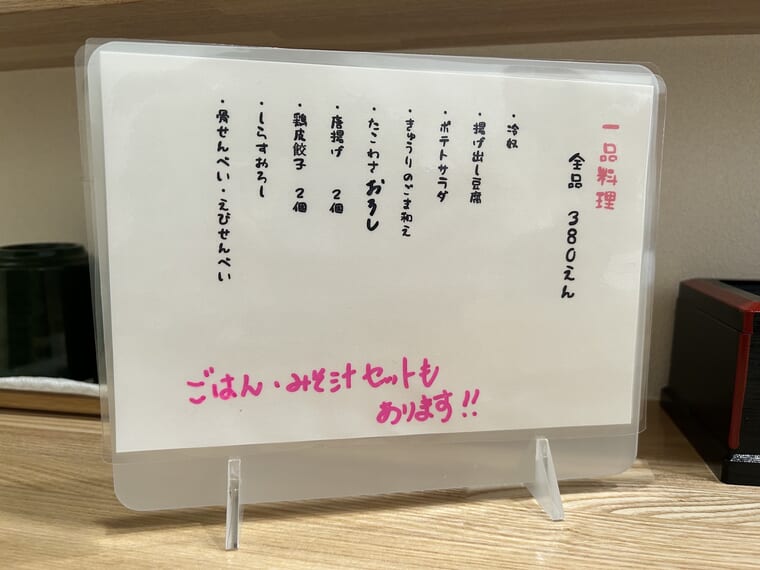 一品料理
全品 380えん
・冷奴
・揚げ出し豆腐
・ポテトサラダ
・きゅうりのごま和え
・たこわさおろし
・唐揚げ 2個
・鶏皮餃子 2個
・しらすおろし
・骨せんべい・えびせんべい
ごはん・みそ汁セットも
あります!!